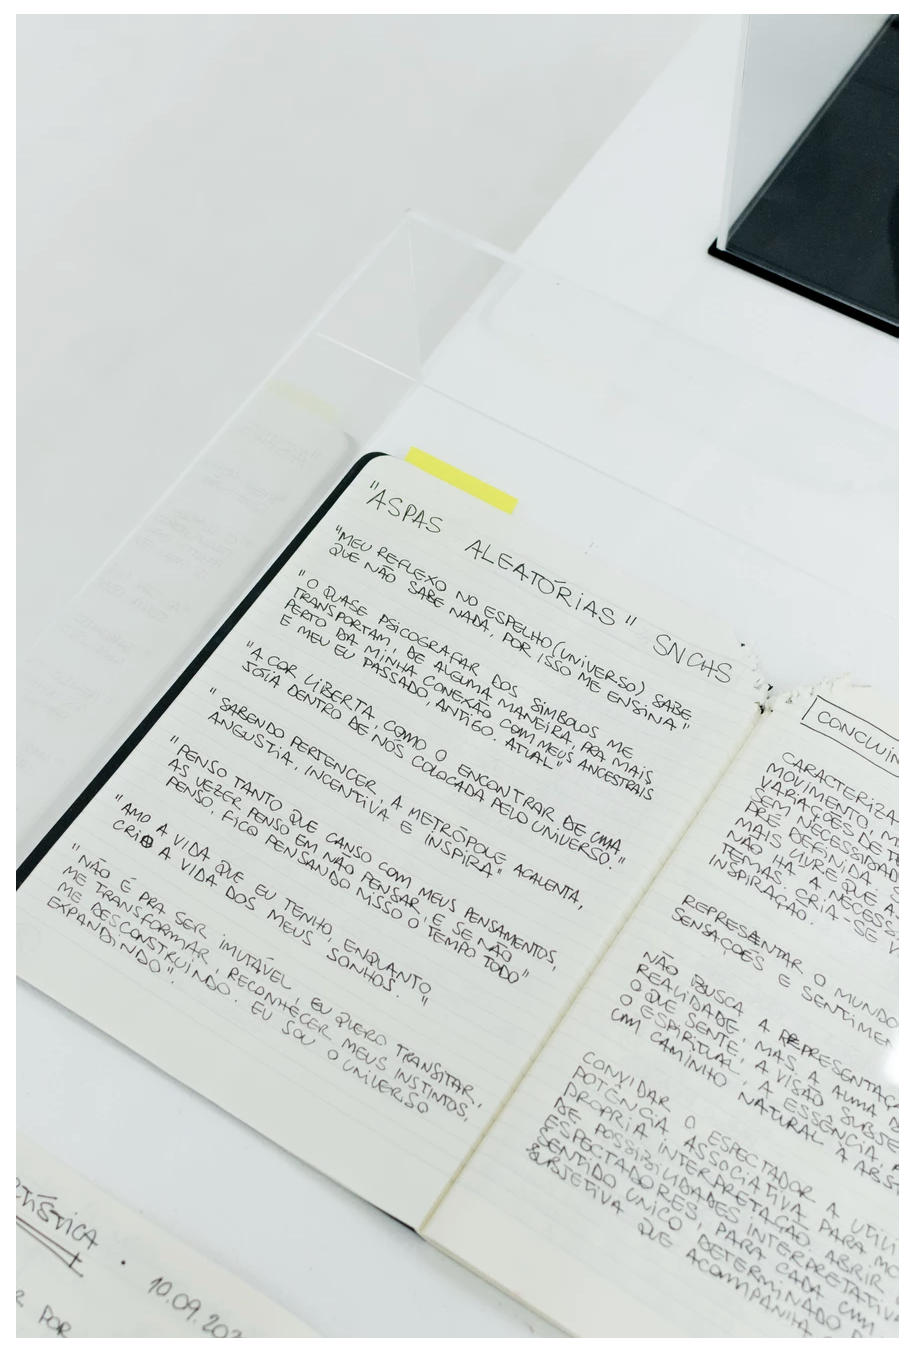 "ASPAS ALEATÓRIAS" SNCHS
"MEU REFLEXO NO ESPELHO (UNIVERSO) SABE
QUE NÃO SABE NADA, POR ISSO ME ENSINA"
"O QUASE PSICOGRAFAR DOS SIMBOLOS ME
TRANSPORTAM, DE ALGUMA MANEIRA, PRA MAIS
PERTO DA MINHA CONEXÃO COM MEUS ANCESTRAIS
E MEU EU PASSADO, ANTIGO. ATUAL"
"A COR LIBERTA, COMO O ENCONTRAR DE UMA
JOIA DENTRO DE NÓS COLOCADA PELO UNIVERSO."
"SABENDO PERTENCER, A METRÓPOLE ACALENTA,
ANGUSTIA, INCENTIVA E INSPIRA"
"PENSO TANTO QUE CANSO COM MEUS PENSAMENTOS,
AS VEZER PENSO EM NÃO PENSAR, E SE NÃO
PENSO, FICO PENSANDO NISSO O TEMPO TODO"
"AMO A VIDA QUE EU TENHO, ENQUANTO
CRIO A VIDA DOS MEUS SONHOS."
"NÃO É PRA SER IMUTÁVEL, EU QUERO TRANSITAR,
ME TRANSFORMAR, RECONHECER MEUS INSTINTOS,
ME DESCONSTRUINDO. EU SOU O UNIVERSO
EXPANDINDO".
CONCLUIN
CARACTERIZA
MOVIMENTO, M
VARIAÇÕES DE TE
SEM NECESSIDAD
PRÉ DEFINIDA. S
MAIS LIVRE QUE A
NÃO HÁ A NECESS
TEMAS. CRIA-SE V
INSPIRAÇÃO.
REPRESENTAR O MUNDO
SENSAÇÕES E SENTIMEN
NÃO BUSCA A REPRESENTAÇÃ
REALIDADE, MAS, A ALMA D
O QUE SENTE, A VISÃO SUBJE
O ESPIRITUAL, A ESSÊNCIA. A
UM CAMINHO NATURAL A ABS
CONVIDAR O ESPECTADOR A UTILI
POTÊNCIA ASSOCIATIVA PARA MO
PROPRIA INTERPRETAÇÃO. ABRIR
DE POSSIBILIDADES INTERPRETATIVA
ESPECTADORES, PARA CADA UM
SENTIDO UNICO DETERMINADO P
SUBJETIVA QUE ACOMPANHA
RTÍSTICA . 10.09.202
R POR